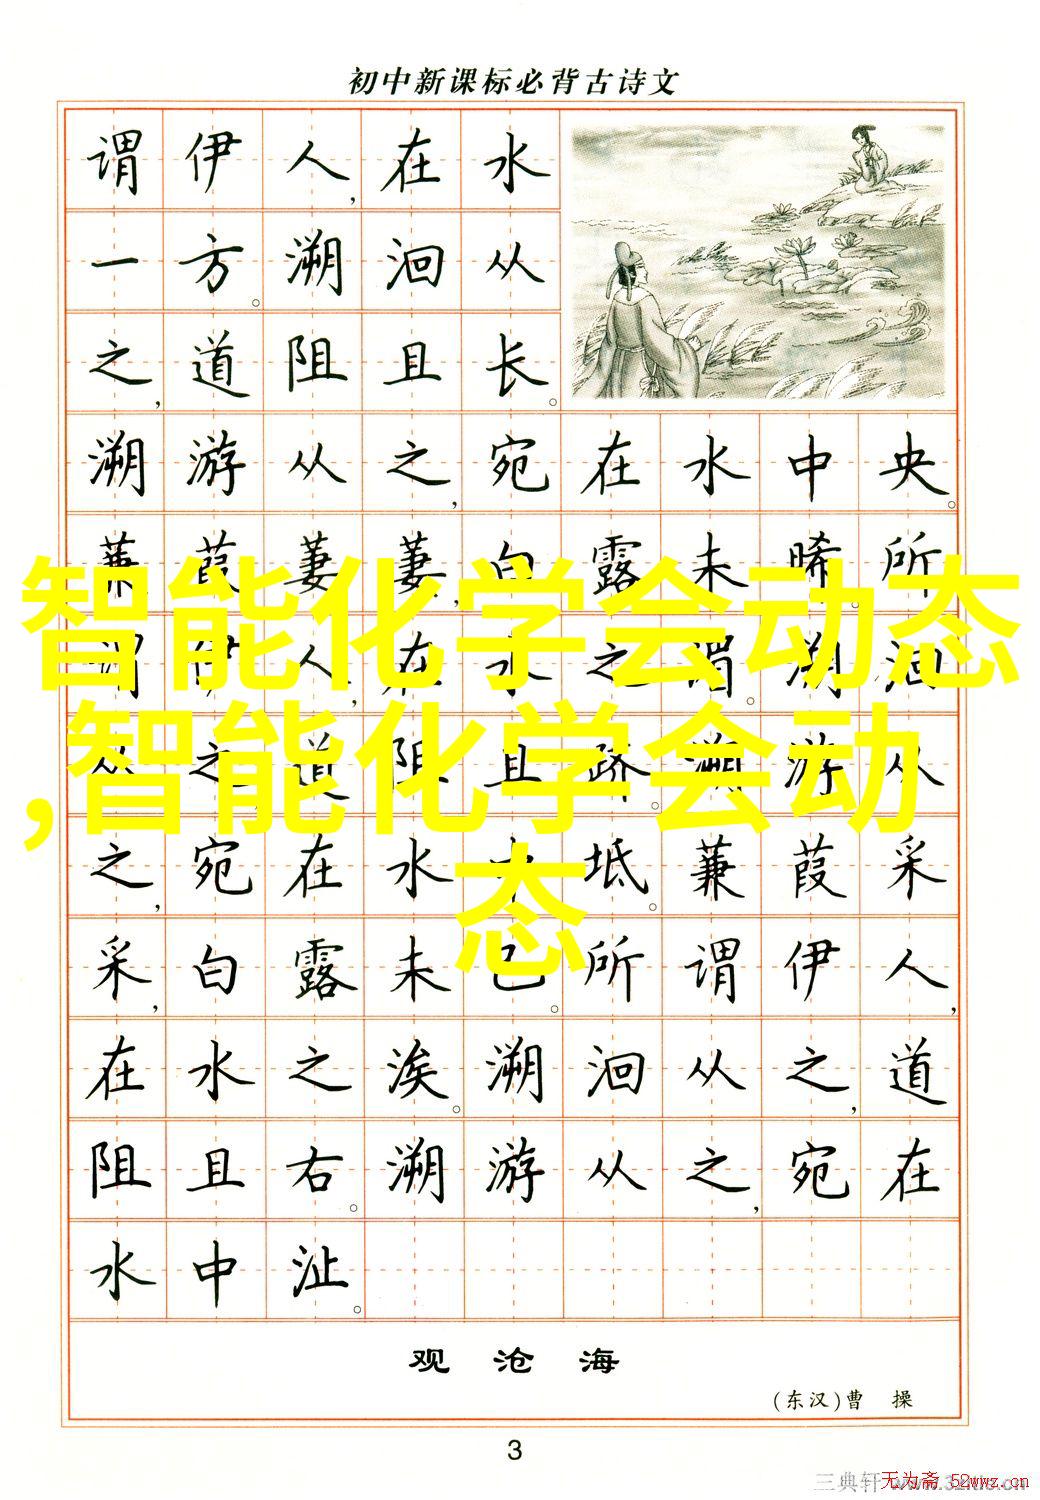 初中新课标必背古诗文
谓伊人,在水
一方。溯洄从
之,道阻且长。
溯游从之,宛在水中央。
蒹葭萋萋,白露未晞。所
谓伊人,在水之湄。溯洄
从之,道阻且跻。溯游从
之,宛在水中坻。蒹葭采
采,白露未已。所谓伊人,
在水之涘。溯洄从之,道
阻且右。溯游从之,宛在
水中沚。
智能化学会动态
,智能化学会动
态
观沧海
(东汉)曹 操
3
无为斋 52wwz.cn